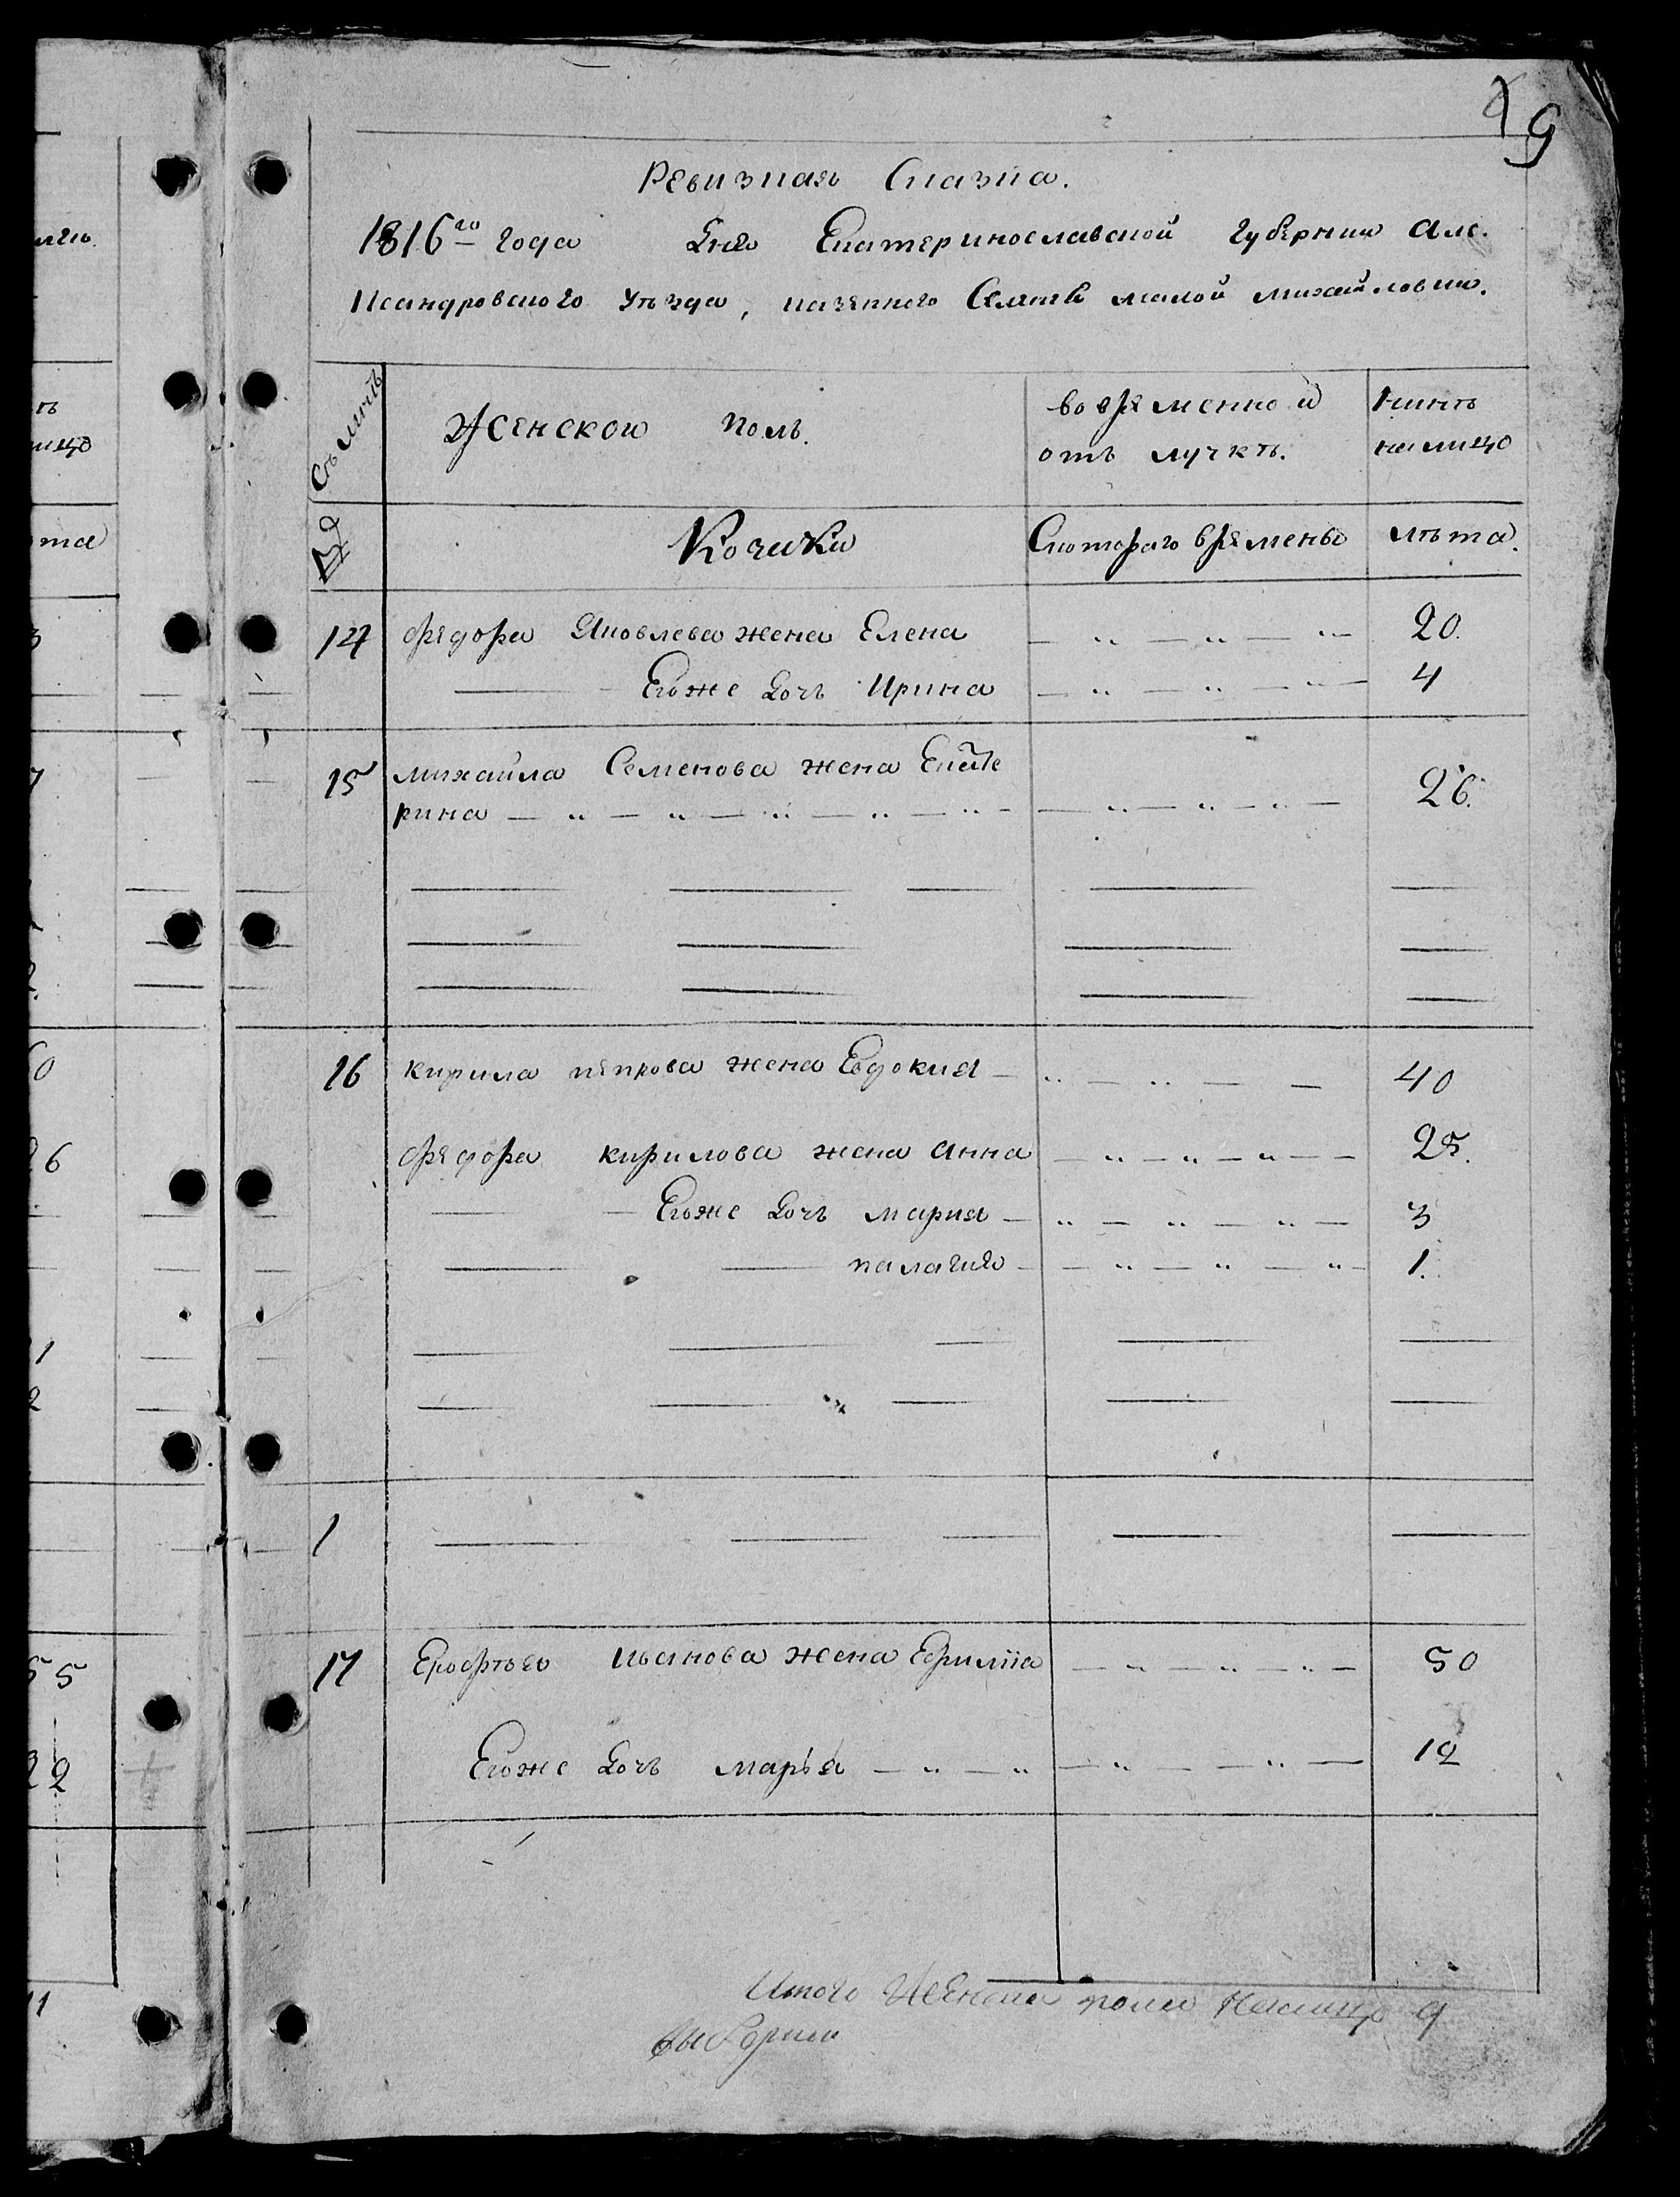 9
Ревизная Сказка.
1816го года Дня Екатеринославской губернии Алє.
ксандровского уѣзда, казенного Селѣнія малой михайловки.
Съмиятъ
Женской полъ.
во временной
отъ лучкѣ.
Нинѣ
налицо
№
Которого времени
лѣта.
14 федора Яковлева жена Елена — " — " — " — 20.
Егоже дочь Ирина — " — " — " — 4
15 михайла Семенова жена Екате
рина — " — " — " — " — " — 26.
16 кирила петрова жена Евдокия — " — " — — 40
федора кирилова жена анна — " — " — " — — 25.
Егоже дочь мария — " — " — " — 3
палагия — — " — " — " — 1.
1
17 Ерофѣя иванова жена Ефимія — " — " — " — 50
Егоже дочь марья — " — " — " — — " — 12
Итого женска пола налицо 9